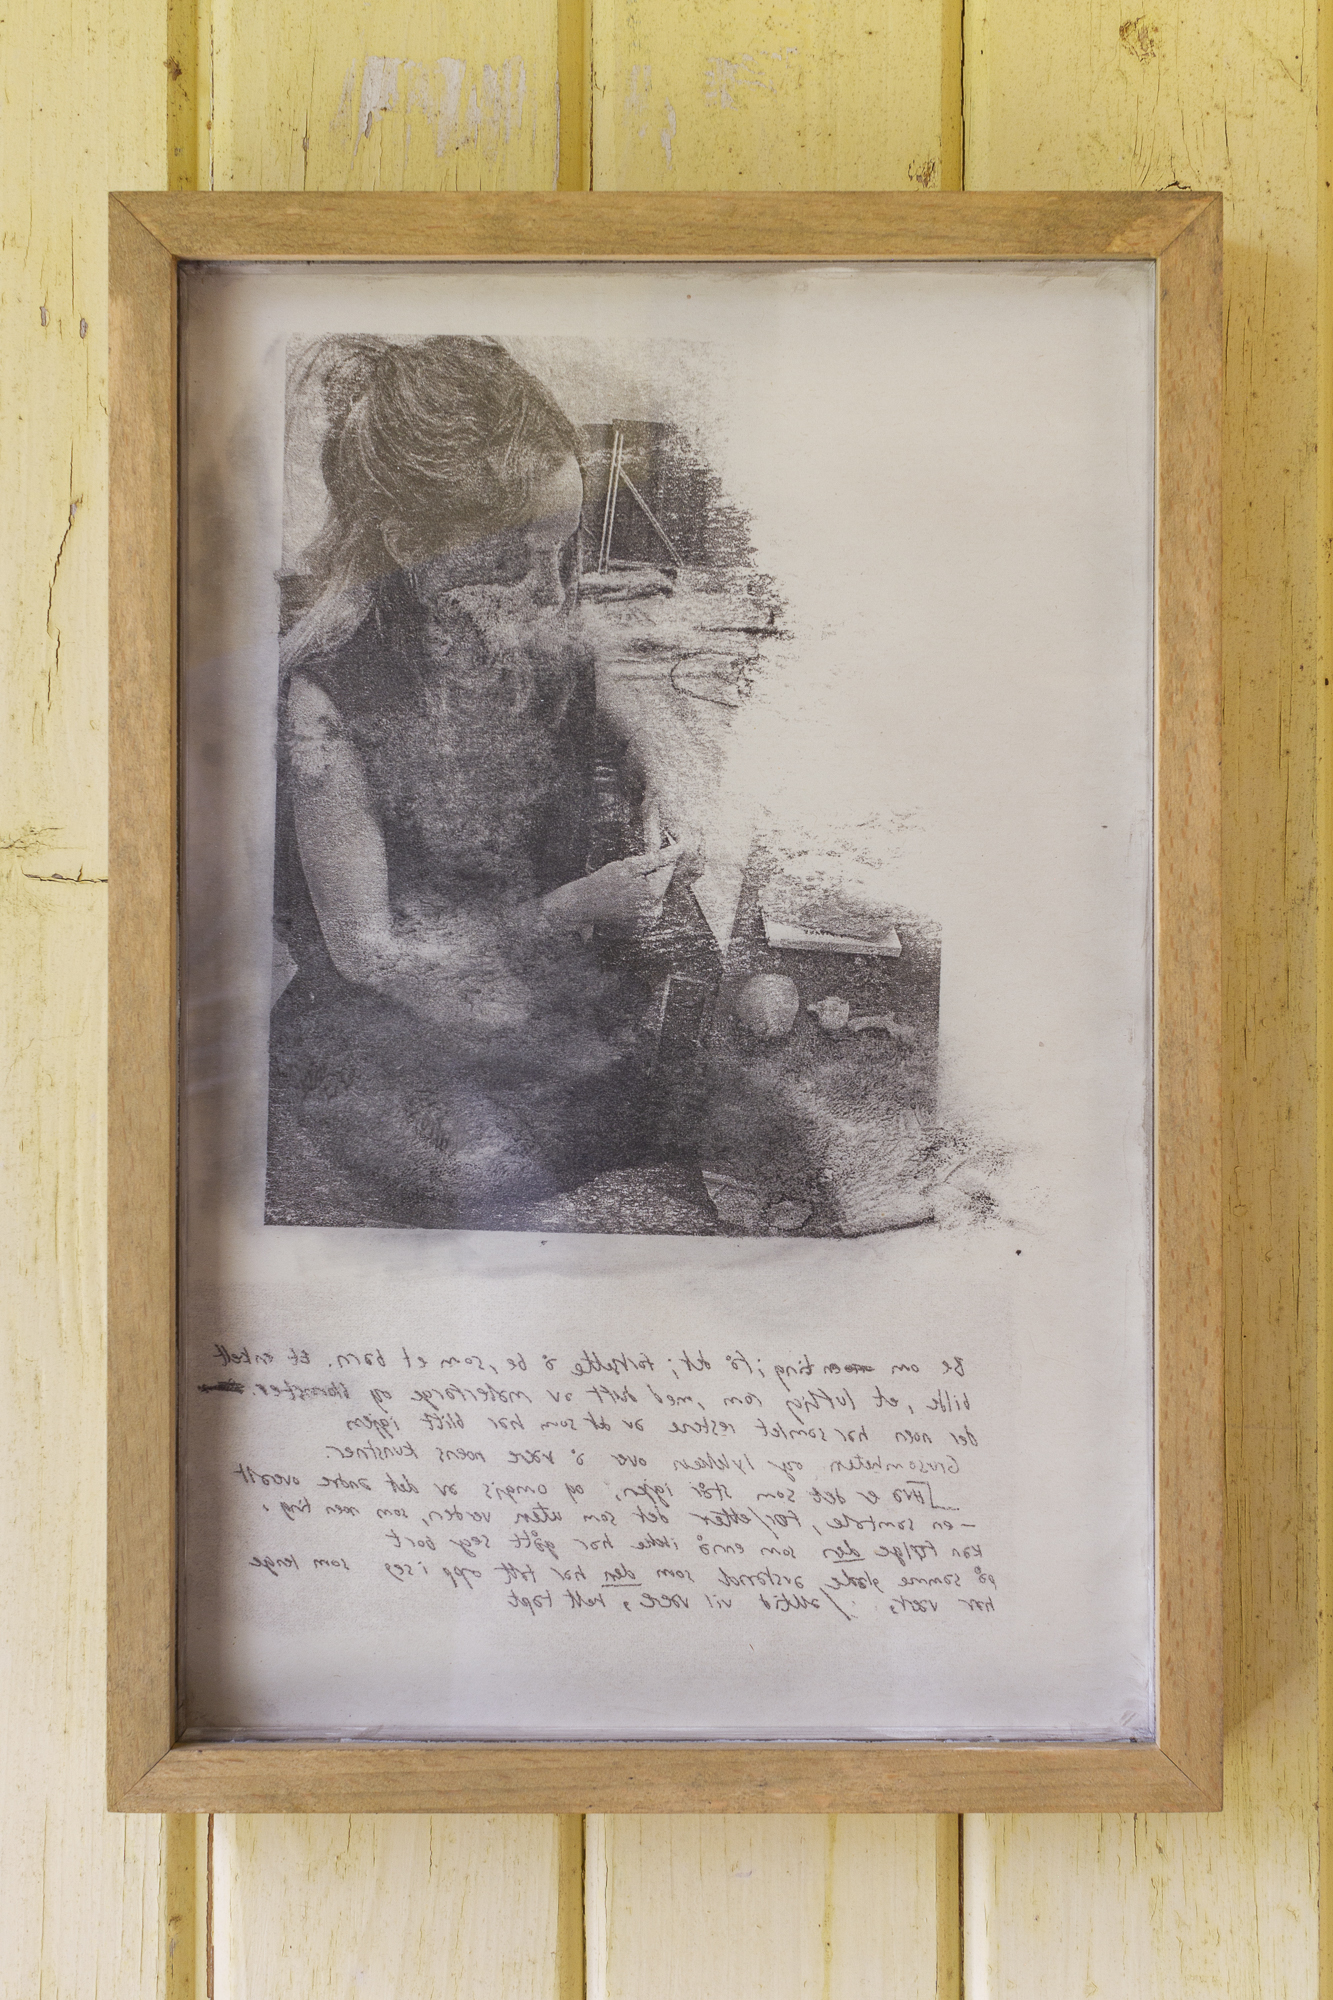 Be om noen ting; få det; fortsette å be, som et barn. Et enkelt
bilde, et luftig rom, med duft av malerfarge og blomster.
der noen har samlet restene av det som har blitt igjen
Grusomheten og lykken over å være noens kunstner.
[Hva er det som står igjen, og omgis av det andre overalt
– en samtale, før/etter det som uten verden, som noen ting,
kan følge den som ennå ikke har gått seg bort
på samme glade, avstand som den har tatt opp i seg som lenge
har vært, /alltid vil være, helt tapt